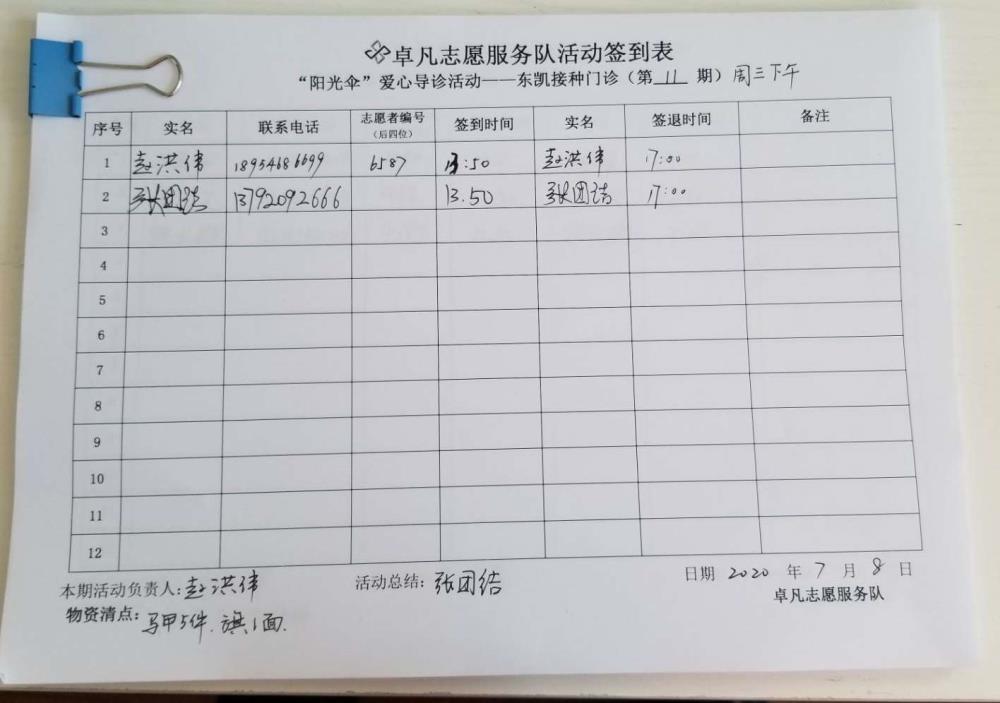 卓凡志愿服务队活动签到表
“阳光伞”爱心导诊活动——东凯接种门诊（第 11 期）周三下午
序号 实名 联系电话 志愿者编号（后四位） 签到时间 实名 签退时间 备注
1 赵洪伟 18954686699 6587 13:50 赵洪伟 17:00
2 张团结 13792092666 13.50 张团结 17:00
3
4
5
6
7
8
9
10
11
12
本期活动负责人:赵洪伟 活动总结:张团结 日期 2020 年 7 月 8 日
物资清点:马甲5件.旗1面. 卓凡志愿服务队